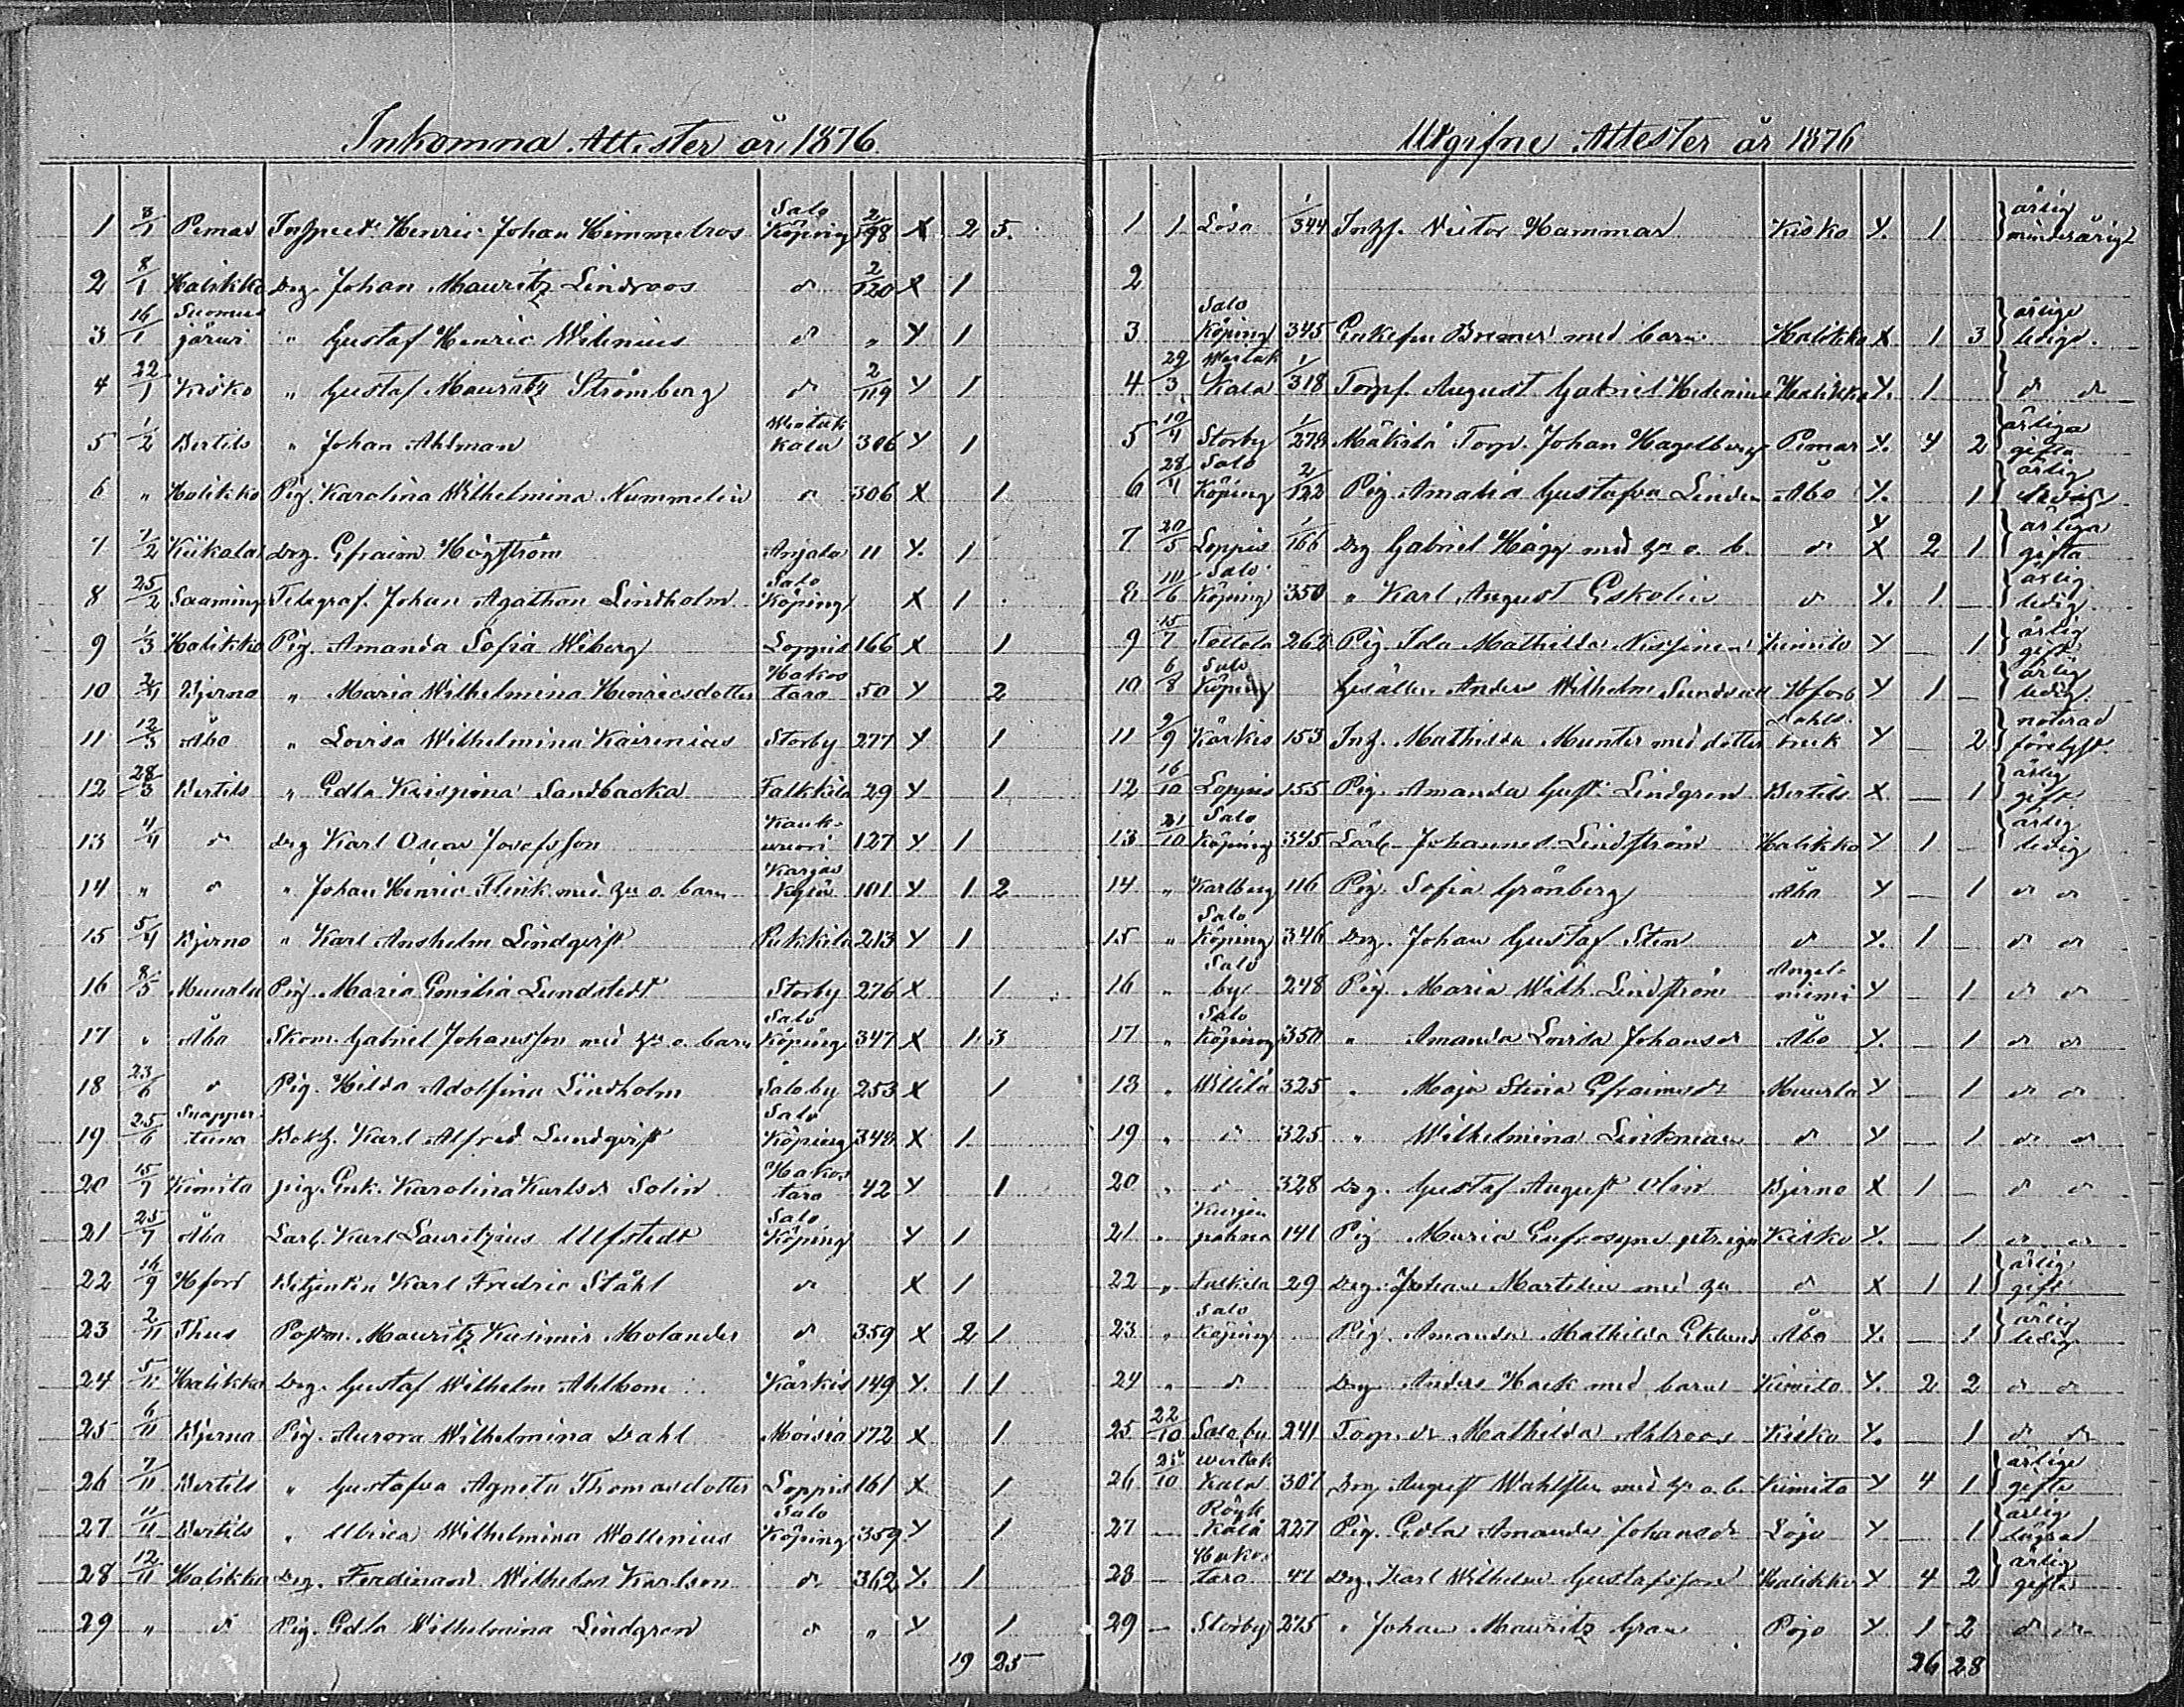 Inkomna Attester år 1876.
1 8/1 Pemar Inspect. Henric Johan Himmelros Salo Köping 2/198 X 2 5.
2 8/1 Halikko Drg. Johan Mauritz Lindroos d 2/120 X 1
3 16/1 Suomus järwi " Gustaf Henric Wilenius d " Y 1
4 22/1 Kisko " Gustaf Mauritz Strömberg d 2/119 Y 1
5 1/2 Bertils " Johan Ahlman kala 306 Y 1
6 " Halikko Pig. Karolina Wilhelmina Nummelin d 306 X 1
7 7/2 Kiikala Drg. Efraim Högström Anjala 11 Y. 1
8 25/2 Telegraf. Johan Agathon Lindholm Salo Köping X 1
9 1/3 Halikko Pig. Amanda Sofia Wiberg Loppis 166 X 1
10 Bjerno " Maria Wilhelmina Henricsdotter Hakos taro 50 Y 2
11 12/3 Åbo " Lovisa Wilhelmina Kairenius Storby 277 Y 1
12 28/3 Bertils " Edla Krispina Sandbacka 29 Y 1
13 4/4 d Drg Karl Oscar Josefsson 127 Y 1
14 " d " Johan Henric Flink med hu o. barn 101 Y. 1 2
15 5/4 Bjerno " Karl Anshelm Lindqvist Pukkila 213 Y 1
16 8/5 Muurla Pig. Maria Emilia Lundstedt Storby 276 X 1
17 " Åbo Skom. Gabriel Johansson med hu o. barn Salo Köping 347 X 1 3
18 23/6 d Pig. Hilda Adolfina Lindholm Saloby 253 X 1
19 25/6 Snapper tuna Karl Alfred Lundqvist Salo Köping 349 X 1
20 15/7 Kimito pig. Enk. Karolina Karlsdr Solin Hakos taro 42 Y 1
21 25/7 Åbo Karl Lauritzius Ulfstedt Salo Köping Y 1
22 16/9 Hfors Betjenten Karl Fredric Ståhl d X 1
23 2/11 Thus Postm. Mauritz Kasimir Molander d 359 X 2 1
24 5/11 Halikko Drg. Gustaf Wilhelm Ahlbom Kärkis 149 Y. 1 1
25 6/11 Bjerna Pig. Aurora Wilhelmina Dahl Moisio 172 X 1
26 7/11 Bertils " Gustafva Agneta Thomasdotter Loppis 161 X 1
27 11/11 Bertils " Ulrica Wilhelmina Wallenius Salo Köping 359 Y 1
28 12/11 Halikko Drg. Ferdinand Wilhelm Karlson d 362 Y. 1
29 " d Pig. Edla Wilhelmina Lindgren d " Y 1
19 25
Utgifne Attester år 1876
1 1 Lösa 1/344 Insp. Victor Hammar Kisko Y. 1 ärlig minderårig
2
3 Salo Köping 345 Enkefru Bremer med barn Halikko X 1 3 ärlige ledige.
4 29/3 kala 1/318 Torpf. August Gabriel Halikko Y. 1 d d
5 10/4 Storby 1/279 Mäkilä Torp. Johan Hagelberg Pemar Y. 4 2 ärliga gifta
6 28/4 Salo Köping 2/122 Pig Amalia Gustafva Linden Åbo Y. 1 ärlig ledig
7 20/5 Loppis 1/166 Drg Gabriel Hägg med hu o. b. d X 2 1 ärliga gifta
8 10/6 Salo Köping 350 " Karl August Eskolin d Y. 1 ärlig ledig.
9 15/7 Tottola 262 Pig Ida Mathilda Kimito Y 1 ärlig gift
10 6/8 Salo Köping Gesällen Anders Wilhelm Sundvall Hfors Y 1 ärlig ledig.
11 9/9 Kärkis 153 Inh. Mathilda Munter med dotter Dahls bruk Y 2 noterad förelyst.
12 16/10 Loppis 155 Pig. Amanda Gust. Lindgren Bertils X 1 ärlig gift.
13 21/10 Salo Köping 345 Johannes Lindström Halikko Y 1 ärlig ledig
14 " Karlberg 116 Pig. Sofia Grönberg Åbo Y 1 d d
15 " Salo Köping 346 Drg. Johan Gustaf Sten d Y. 1 d d
16 " Salo by 248 Pig. Maria Wilh. Lindström Angelniemi Y 1 d d
17 " Salo Köping 350 " Amanda Lovisa Johansdr Åbo Y. 1 d d
18 " Wiltilä 325 " Maja Stina Efraimsdr Muurla Y 1 d d
19 " d 325 " Wilhelmina d Y 1 d d
20 " d 328 Drg. Gustaf August Olin Bjerno X 1 d d
21 " Kurjen pahna 141 Pig Maria Eufrosyne Kisko Y. 1 d d
22 " 29 Drg. Johan Martelin med hu d X 1 1 ärlig gift
23 " Salo Köping Pig. Amanda Mathilda Eklund Åbo Y. 1 ärlig ledig
24 " d Drg Anders Hack med barn Kimito Y. 2 2 d d
25 22/10 Salo by 241 Torp. dr Mathilda Ahlroos Kisko Y. 1 d d
26 25/10 kala 307 Drg August med hu o. b. Kimito Y 4 1 ärlige gifte
27 — kälä 227 Pig. Edla Amanda Johansdr Lojo Y 1 ärlig
28 — Hakos taro 47 Drg. Karl Wilhelm Gustafsson Halikko Y 4 2 ärlig gifta
29 — Storby 275 " Johan Mauritz Gran Pojo Y. 1 2 d d
26 28